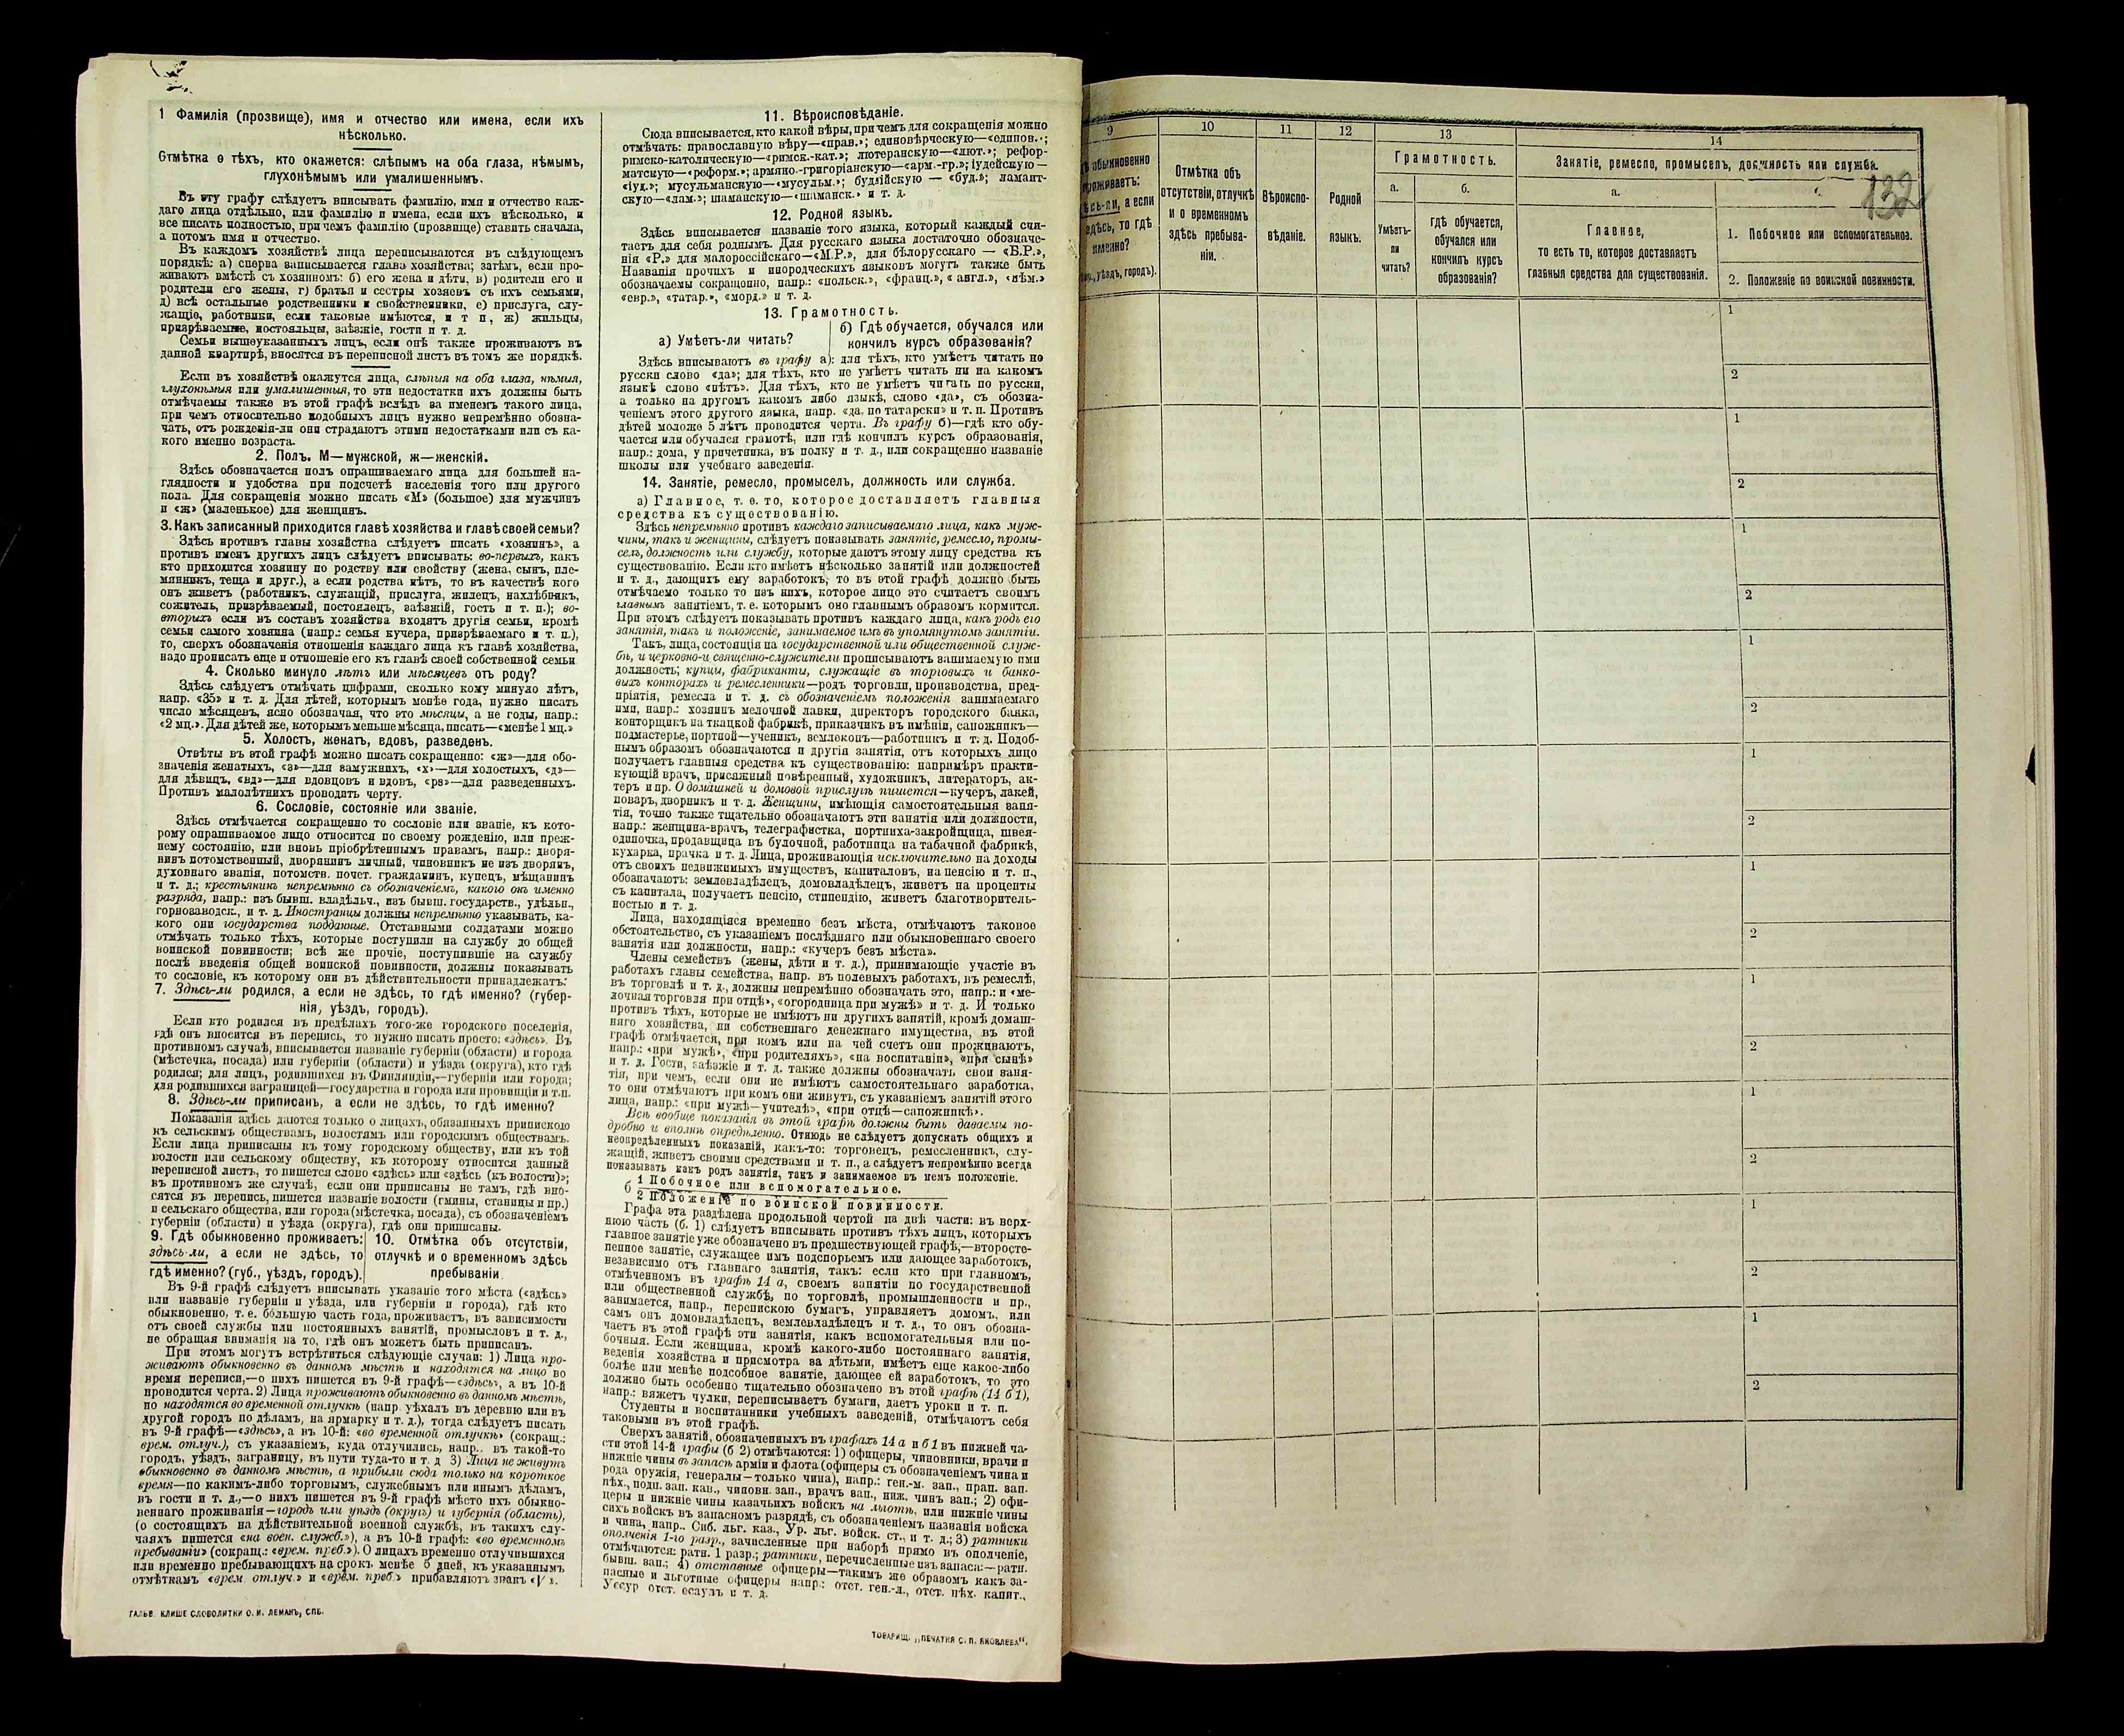 1 Фамилія (прозвище), имя и отчество или имена, если ихъ
нѣсколько.
Отмѣтка о тѣхъ, кто окажется: слѣпымъ на оба глаза, нѣмымъ,
глухонѣмымъ или умалишеннымъ.
Въ эту графу слѣдуетъ вписывать фамилію, имя и отчество каж-
даго лица отдѣльно, или фамилію и имена, если ихъ нѣсколько, и
все писать полностью, при чемъ фамилію (прозвище) ставить сначала,
а потомъ имя и отчество.
Въ каждомъ хозяйствѣ лица переписываются въ слѣдующемъ
порядкѣ: а) сперва записывается глава хозяйства; затѣмъ, если про-
живаютъ вмѣстѣ съ хозяиномъ: б) его жена и дѣти, в) родители его и
родители его жены, г) братья и сестры хозяевъ съ ихъ семьями,
д) всѣ остальные родственники и свойственники, е) прислуга, слу-
жащіе, работники, если таковые имѣются, и т п, ж) жильцы,
призрѣваемые, постояльцы, заѣзжіе, гости и т. д.
Семьи вышеуказанныхъ лицъ, если онѣ также проживаютъ въ
данной квартирѣ, вносятся въ переписной листъ въ томъ же порядкѣ.
Если въ хозяйствѣ окажутся лица, слѣпыя на оба глаза, нѣмыя,
глухонѣмыя или умалишенныя, то эти недостатки ихъ должны быть
отмѣчаемы также въ этой графѣ вслѣдъ за именемъ такого лица,
при чемъ относительно подобныхъ лицъ нужно непремѣнно обозна-
чать, отъ рожденія-ли они страдаютъ этими недостатками или съ ка-
кого именно возраста.
2. Полъ. М—мужской, ж—женскій.
Здѣсь обозначается полъ опрашиваемаго лица для большей на-
глядности и удобства при подсчетѣ населенія того или другого
пола. Для сокращенія можно писать «М» (большое) для мужчинъ
и «ж» (маленькое) для женщинъ.
3. Какъ записанный приходится главѣ хозяйства и главѣ своей семьи?
Здѣсь противъ главы хозяйства слѣдуетъ писать «хозяинъ», а
противъ именъ другихъ лицъ слѣдуетъ вписывать: во-первыхъ, какъ
кто приходится хозяину по родству или свойству (жена, сынъ, пле-
мянникъ, теща и друг.), а если родства нѣтъ, то въ качествѣ кого
онъ живетъ (работникъ, служащій, прислуга, жилецъ, нахлѣбникъ,
сожитель, призрѣваемый, постоялецъ, заѣзжій, гость и т. п.); во-
вторыхъ если въ составъ хозяйства входятъ другія семьи, кромѣ
семьи самого хозяина (напр: семья кучера, призрѣваемаго и т. п.),
то, сверхъ обозначенія отношенія каждаго лица къ главѣ хозяйства,
надо прописать еще и отношеніе его къ главѣ своей собственной семьи
4. Сколько минуло лѣтъ или мѣсяцевъ отъ роду?
Здѣсь слѣдуетъ отмѣчать цифрами, сколько кому минуло лѣтъ,
напр. «35» и т. д. Для дѣтей, которымъ менѣе года, нужно писать
число мѣсяцевъ, ясно обозначая, что это мѣсяцы, а не годы, напр.:
«2 мц.». Для дѣтей же, которымъ меньше мѣсяца, писать—«менѣе 1 мц.»
5. Холостъ, женатъ, вдовъ, разведенъ.
Отвѣты въ этой графѣ можно писать сокращенно: «ж»—для обо-
значенія женатыхъ, «з»—для замужнихъ, «х»—для холостыхъ, «д»—
для дѣвицъ, «вд»—для вдовцовъ и вдовъ, «рз»—для разведенныхъ.
Противъ малолѣтнихъ проводить черту.
6. Сословіе, состояніе или званіе.
Здѣсь отмѣчается сокращенно то сословіе или званіе, къ кото-
рому опрашиваемое лицо относится по своему рожденію, или преж-
нему состоянію, или вновь пріобрѣтеннымъ правамъ, напр.: дворя-
нинъ потомственный, дворянинъ личный, чиновникъ не изъ дворянъ,
духовнаго званія, потомств. почет. гражданинъ, купецъ, мѣщанинъ
и т. д.; крестьянинъ непремѣнно съ обозначеніемъ, какого онъ именно
разряда, напр.: изъ бывш. владѣльч., изъ бывш. государств., удѣльн.,
горнозаводск., и т. д. Иностранцы должны непремѣнно указывать, ка-
кого они государства подданные. Отставными солдатами можно
отмѣчать только тѣхъ, которые поступили на службу до общей
воинской повинности; всѣ же прочіе, поступившіе на службу
послѣ введенія общей воинской повинности, должны показывать
то сословіе, къ которому они въ дѣйствительности принадлежатъ.
7. Здѣсь-ли родился, а если не здѣсь, то гдѣ именно? (губер-
нія, уѣздъ, городъ).
Если кто родился въ предѣлахъ того-же городского поселенія,
гдѣ онъ вносится въ перепись, то нужно писать просто: «здѣсь». Въ
противномъ случаѣ, вписывается названіе губерніи (области) и города
(мѣстечка, посада) или губерніи (области) и уѣзда (округа), кто гдѣ
родился; для лицъ, родившихся въ Финляндіи,—губерніи или города;
для родившихся заграницей—государства и города или провинціи и т.п.
8. Здѣсь-ли приписанъ, а если не здѣсь, то гдѣ именно?
Показанія здѣсь даются только о лицахъ, обязанныхъ припискою
къ сельскимъ обществамъ, волостямъ или городскимъ обществамъ.
Если лица приписаны къ тому городскому обществу, или къ той
волости или сельскому обществу, къ которому относится данный
переписной листъ, то пишется слово «здѣсь» или «здѣсь (къ волости)»;
въ противномъ же случаѣ, если они приписаны не тамъ, гдѣ вно-
сятся въ перепись, пишется названіе волости (гмины, станицы и пр.)
и сельскаго общества, или города (мѣстечка, посада), съ обозначеніемъ
губерніи (области) и уѣзда (округа), гдѣ они приписаны.
9. Гдѣ обыкновенно проживаетъ:
здѣсь-ли, а если не здѣсь, то
гдѣ именно? (губ., уѣздъ, городъ).
10. Отмѣтка объ отсутствіи,
отлучкѣ и о временномъ здѣсь
пребываніи
Въ 9-й графѣ слѣдуетъ вписывать указаніе того мѣста («здѣсь»
или названіе губерніи и уѣзда, или губерніи и города), гдѣ кто
обыкновенно, т. е. бо́льшую часть года, проживаетъ, въ зависимости
отъ своей службы или постоянныхъ занятій, промысловъ и т. д.,
не обращая вниманія на то, гдѣ онъ можетъ быть приписанъ.
При этомъ могутъ встрѣтиться слѣдующіе случаи: 1) Лица про-
живаютъ обыкновенно въ данномъ мѣстѣ и находятся на лицо во
время переписи,—о нихъ пишется въ 9-й графѣ—«здѣсь», а въ 10-й
проводится черта. 2) Лица проживаютъ обыкновенно въ данномъ мѣстѣ,
но находятся во временной отлучкѣ (напр уѣхалъ въ деревню или въ
другой городъ по дѣламъ, на ярмарку и т. д.), тогда слѣдуетъ писать
въ 9-й графѣ—«здѣсь», а въ 10-й: «во временной отлучкѣ» (сокращ.:
врем. отлуч.), съ указаніемъ, куда отлучились, напр.. въ такой-то
городъ, уѣздъ, заграницу, въ пути туда-то и т. д 3) Лица не живутъ
обыкновенно въ данномъ мѣстѣ, а прибыли сюда только на короткое
время—по какимъ-либо торговымъ, служебнымъ или инымъ дѣламъ,
въ гости и т. д.,—о нихъ пишется въ 9-й графѣ мѣсто ихъ обыкно-
веннаго проживанія—городъ или уѣздъ (округъ) и губернія (область),
(о состоящихъ на дѣйствительной военной службѣ, въ такихъ слу-
чаяхъ пишется «на воен. служб.»), а въ 10-й графѣ: «во временномъ
пребываніи» (сокращ.: «врем. преб.»). О лицахъ временно отлучившихся
или временно пребывающихъ на срокъ менѣе 5 дней, къ указаннымъ
отмѣткамъ «врем. отлуч.» и «врем. преб.» прибавляютъ знакъ «V».
ГАЛЬВ. КЛИШЕ СЛОВОЛИТНИ О. И. ЛЕМАНЪ, СПБ.
11. Вѣроисповѣданіе.
Сюда вписывается, кто какой вѣры, при чемъ для сокращенія можно
отмѣчать: православную вѣру—«прав.»; единовѣрческую—«единов.»;
римско-католическую—«римск.-кат.»; лютеранскую—«лют.»; рефор-
матскую—«реформ.»; армяно-григоріанскую—«арм.-гр.»; іудейскую—
«іуд.»; мусульманскую—«мусульм.»; буддійскую — «буд.»; ламаит-
скую—«лам.»; шаманскую—«шаманск.» и т. д.
12. Родной языкъ.
Здѣсь вписывается названіе того языка, который каждый счи-
таетъ для себя роднымъ. Для русскаго языка достаточно обозначе-
нія «Р.» для малороссійскаго—«М.Р.», для бѣлорусскаго — «Б.Р.»,
Названія прочихъ и инородческихъ языковъ могутъ также быть
обозначаемы сокращенно, напр.: «польск.», «франц.», «англ.», «нѣм.»
«евр.», «татар.», «морд.» и т. д.
13. Грамотность.
а) Умѣетъ-ли читать?
б) Гдѣ обучается, обучался или
кончилъ курсъ образованія?
Здѣсь вписываютъ въ графу а): для тѣхъ, кто умѣетъ читать по
русски слово «да»; для тѣхъ, кто не умѣетъ читать ни на какомъ
языкѣ слово «нѣтъ». Для тѣхъ, кто не умѣетъ читать по русски,
а только на другомъ какомъ либо языкѣ, слово «да», съ обозна-
ченіемъ этого другого языка, напр. «да, по татарски» и т. п. Противъ
дѣтей моложе 5 лѣтъ проводится черта. Въ графу б)—гдѣ кто обу-
чается или обучался грамотѣ, или гдѣ кончилъ курсъ образованія,
напр.: дома, у причетника, въ полку и т. д., или сокращенно названіе
школы или учебнаго заведенія.
14. Занятіе, ремесло, промыселъ, должность или служба.
а) Главное, т. е. то, которое доставляетъ главныя
средства къ существованію.
Здѣсь непремѣнно противъ каждаго записываемаго лица, какъ муж-
чины, такъ и женщины, слѣдуетъ показывать занятіе, ремесло, промы-
селъ, должность или службу, которые даютъ этому лицу средства къ
существованію. Если кто имѣетъ нѣсколько занятій или должностей
и т. д., дающихъ ему заработокъ, то въ этой графѣ должно быть
отмѣчаемо только то изъ нихъ, которое лицо это считаетъ своимъ
главнымъ занятіемъ, т. е. которымъ оно главнымъ образомъ кормится.
При этомъ слѣдуетъ показывать противъ каждаго лица, какъ родъ его
занятія, такъ и положеніе, занимаемое имъ въ упомянутомъ занятіи.
Такъ, лица, состоящія на государственной или общественной служ-
бѣ, и церковно-и священно-служители прописываютъ занимаемую ими
должность; купцы, фабриканты, служащіе въ торговыхъ и банко-
выхъ конторахъ и ремесленники—родъ торговли, производства, пред-
пріятія, ремесла и т. д. съ обозначеніемъ положенія занимаемаго
ими, напр.: хозяинъ мелочной лавки, директоръ городского банка,
конторщикъ на ткацкой фабрикѣ, приказчикъ въ имѣніи, сапожникъ—
подмастерье, портной—ученикъ, землекопъ—работникъ и т. д. Подоб-
нымъ образомъ обозначаются и другія занятія, отъ которыхъ лицо
получаетъ главныя средства къ существованію: напримѣръ практи-
кующій врачъ, присяжный повѣренный, художникъ, литераторъ, ак-
теръ и пр. О домашней и домовой прислугѣ пишется—кучеръ, лакей,
поваръ, дворникъ и т. д. Женщины, имѣющія самостоятельныя заня-
тія, точно также тщательно обозначаютъ эти занятія или должности,
напр.: женщина-врачъ, телеграфистка, портниха-закройщица, швея-
одиночка, продавщица въ булочной, работница на табачной фабрикѣ,
кухарка, прачка и т. д. Лица, проживающія исключительно на доходы
отъ своихъ недвижимыхъ имуществъ, капиталовъ, на пенсію и т. п.,
обозначаютъ: землевладѣлецъ, домовладѣлецъ, живетъ на проценты
съ капитала, получаетъ пенсію, стипендію, живетъ благотворитель-
ностью и т. д.
Лица, находящіяся временно безъ мѣста, отмѣчаютъ таковое
обстоятельство, съ указаніемъ послѣдняго или обыкновеннаго своего
занятія или должности, напр.: «кучеръ безъ мѣста».
Члены семействъ (жены, дѣти и т. д.), принимающіе участіе въ
работахъ главы семейства, напр. въ полевыхъ работахъ, въ ремеслѣ,
въ торговлѣ и т. д., должны непремѣнно обозначать это, напр.: и «ме-
лочная торговля при отцѣ», «огородница при мужѣ» и т. д. И только
противъ тѣхъ, которые не имѣютъ ни другихъ занятій, кромѣ домаш-
няго хозяйства, ни собственнаго денежнаго имущества, въ этой
графѣ отмѣчается, при комъ или на чей счетъ они проживаютъ,
напр.: «при мужѣ», «при родителяхъ», «на воспитаніи», «при сынѣ»
и т. д. Гости, заѣзжіе и т. д. также должны обозначать свои заня-
тія, при чемъ, если они не имѣютъ самостоятельнаго заработка,
то они отмѣчаютъ при комъ они живутъ, съ указаніемъ занятій этого
лица, напр.: «при мужѣ—учителѣ», «при отцѣ—сапожникѣ».
Всѣ вообще показанія въ этой графѣ должны быть даваемы по-
дробно и вполнѣ опредѣленно. Отнюдь не слѣдуетъ допускать общихъ и
неопредѣленныхъ показаній, какъ-то: торговецъ, ремесленникъ, слу-
жащій, живетъ своими средствами и т. п., а слѣдуетъ непремѣнно всегда
показывать какъ родъ занятія, такъ и занимаемое въ немъ положеніе.
б 1 Побочное или вспомогательное.
2 Положеніе по воинской повинности.
Графа эта раздѣлена продольной чертой на двѣ части: въ верх-
нюю часть (б. 1) слѣдуетъ вписывать противъ тѣхъ лицъ, которыхъ
главное занятіе уже обозначено въ предшествующей графѣ,—второсте-
пенное занятіе, служащее имъ подспорьемъ или дающее заработокъ,
независимо отъ главнаго занятія, такъ: если кто при главномъ,
отмѣченномъ въ графѣ 14 а, своемъ занятіи по государственной
или общественной службѣ, по торговлѣ, промышленности и пр.,
занимается, напр., перепискою бумагъ, управляетъ домомъ, или
самъ онъ домовладѣлецъ, землевладѣлецъ и т. д., то онъ обозна-
чаетъ въ этой графѣ эти занятія, какъ вспомогательныя или по-
бочныя. Если женщина, кромѣ какого-либо постояннаго занятія,
веденія хозяйства и присмотра за дѣтьми, имѣетъ еще какое-либо
болѣе или менѣе подсобное занятіе, дающее ей заработокъ, то это
должно быть особенно тщательно обозначено въ этой графѣ (14 б 1),
напр.: вяжетъ чулки, переписываетъ бумаги, даетъ уроки и т. п.
Студенты и воспитанники учебныхъ заведеній, отмѣчаютъ себя
таковыми въ этой графѣ.
Сверхъ занятій, обозначенныхъ въ графахъ 14 а и б 1 въ нижней ча-
сти этой 14-й графы (б 2) отмѣчаются: 1) офицеры, чиновники, врачи и
нижніе чины въ запасѣ арміи и флота (офицеры съ обозначеніемъ чина и
рода оружія, генералы—только чина), напр.: ген.-м. зап., прап. зап.
пѣх., подп. зап. кав., чиновн. зап., врачъ зап., ниж. чинъ зап.; 2) офи-
церы и нижніе чины казачьихъ войскъ на льготѣ, или нижніе чины
сихъ войскъ въ запасномъ разрядѣ, съ обозначеніемъ названія войска
и чина, напр.. Сиб. льг. каз., Ур. льг. войск. ст., и т. д.; 3) ратники
ополченія 1-го разр., зачисленные при наборѣ прямо въ ополченіе,
отмѣчаются: ратн. 1 разр.; ратники, перечисленные изъ запаса:—ратн.
бывш. зап.; 4) отставные офицеры—такимъ же образомъ какъ за-
пасные и льготные офицеры напр.: отст. ген.-л., отст. пѣх. капит.,
Уссур отст. есаулъ и т. д.
ТОВАРИЩ. „ПЕЧАТНЯ С. П. ЯКОВЛЕВА".
9
обыкновенно
проживаетъ:
а если
здѣсь, то гдѣ
именно?
уѣздъ, городъ).
10
Отмѣтка объ
отсутствіи, отлучкѣ
и о временномъ
здѣсь пребыва-
ніи.
11
Вѣроиспо-
вѣданіе.
12
Родной
языкъ.
13
Грамотность.
а.
Умѣетъ-
ли
читать?
б.
гдѣ обучается,
обучался или
кончилъ курсъ
образованія?
14
Занятіе, ремесло, промыселъ, должность или служба.
132
а.
Главное,
то есть то, которое доставляетъ
главныя средства для существованія.
1. Побочное или вспомогательное.
2. Положеніе по воинской повинности.
1
2
1
2
1
2
1
2
1
2
1
2
1
2
1
2
1
2
1
2